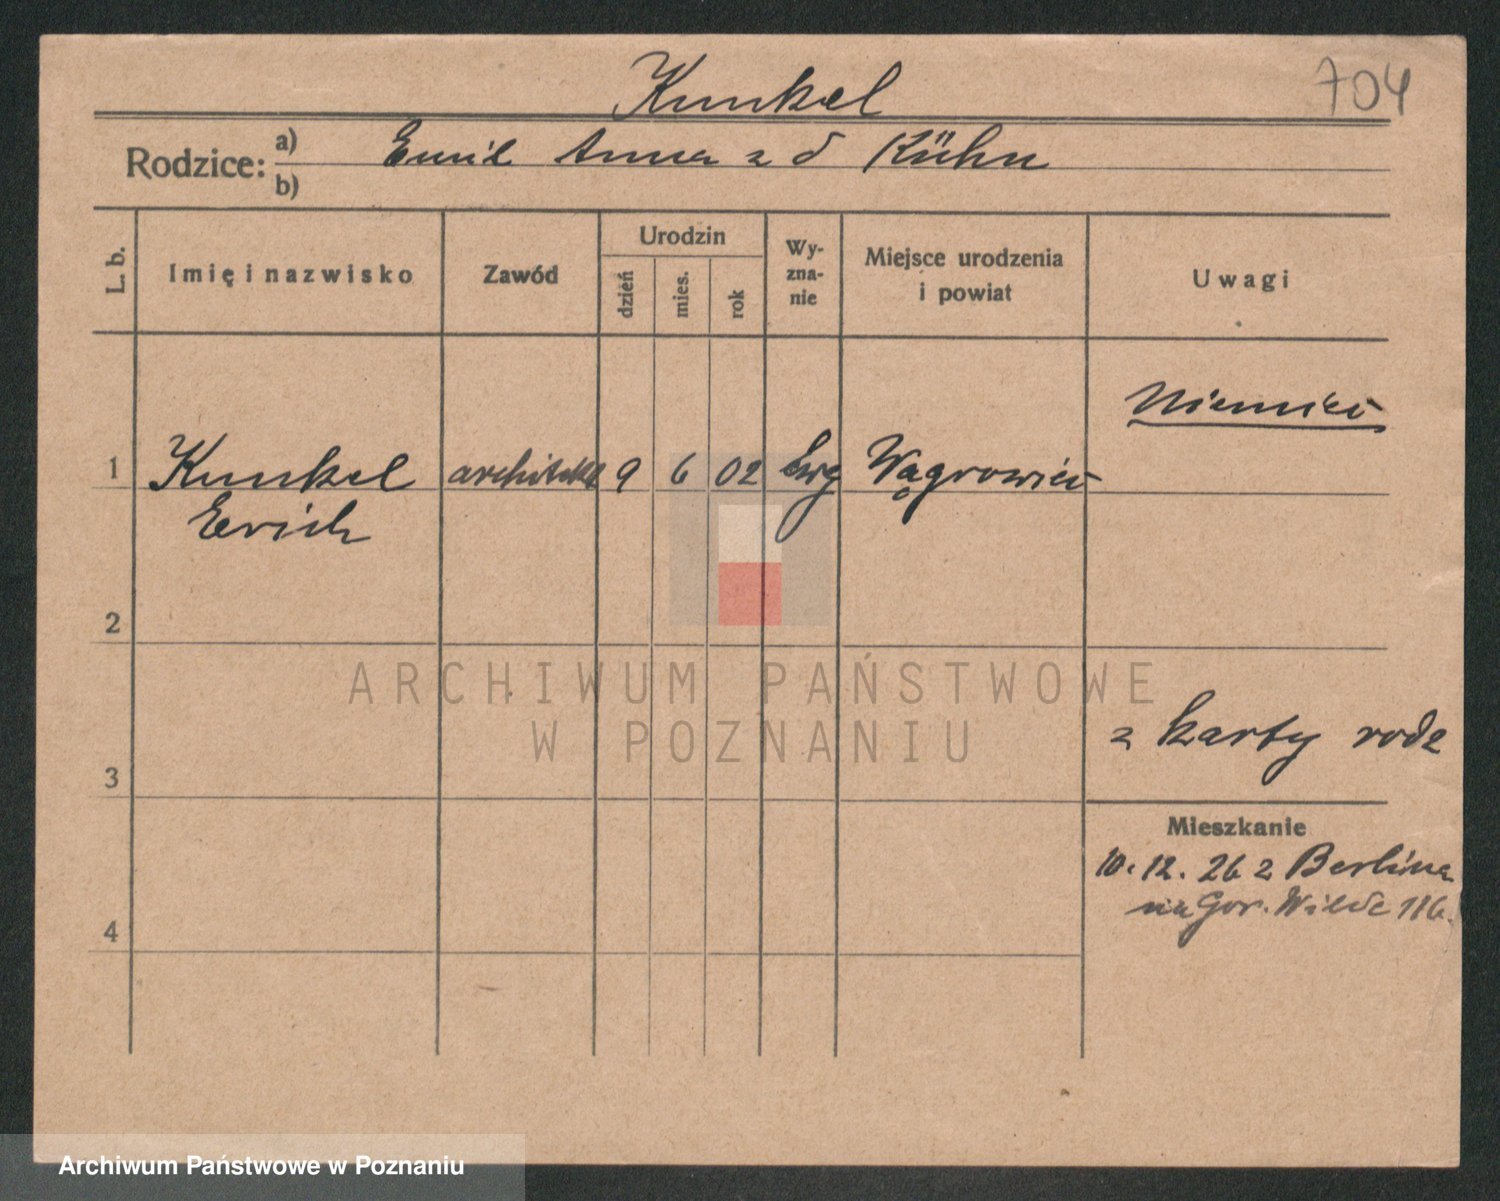 704
Kunkel
Rodzice: a) Emil Anna z d Kühn
b)
L. b.
Imię i nazwisko
Zawód
Urodzin
dzień
mies.
rok
Wy-
zna-
nie
Miejsce urodzenia
i powiat
Uwagi
Niemiec
1 Kunkel architekt 9 6 02 Ewg Wągrowiec
Erich
2
ARCHIWUM PAŃSTWOWE
W POZNANIU
z karty rodz
3
Mieszkanie
10. 12. 26 z Berlina
na Gór. Wilde 116.
4
Archiwum Państwowe w Poznaniu